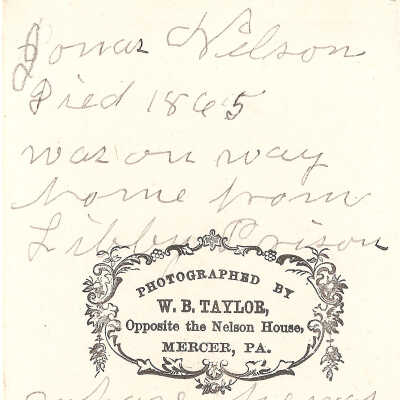 Jonas Nelson
Died 1865
was on way
home from
Libby Prison
PHOTOGRAPHED BY
W. B. TAYLOR,
Opposite the Nelson House,
MERCER, PA.
where he was